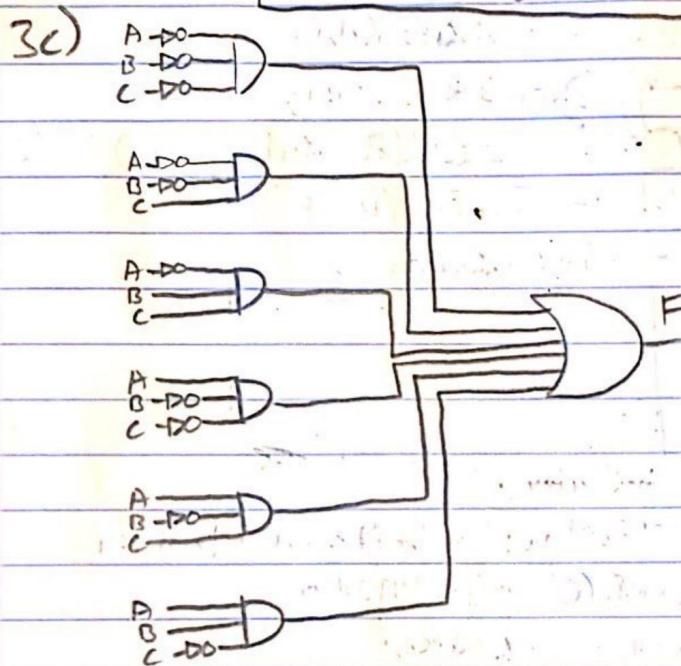 3c)
A
B
C
A
B
C
A
B
C
F
A
B
C
A
B
C
A
B
C